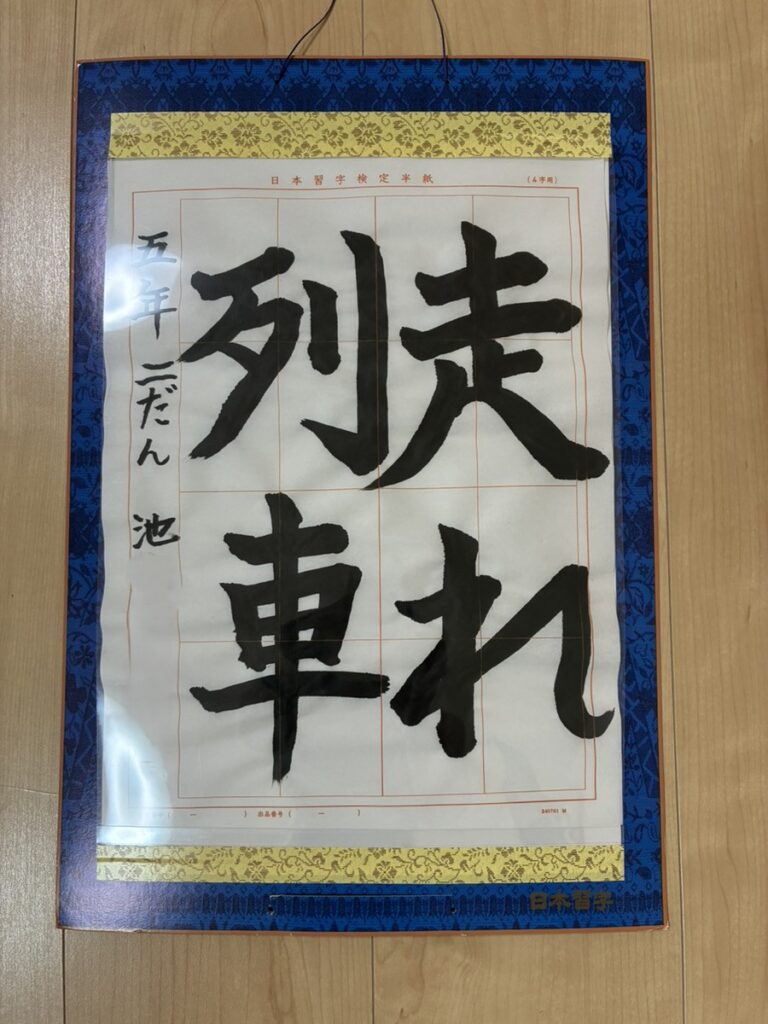 日本習字検定半紙
(4字用)
走れ
列車
五年 二だん 池
出品番号 ( ー )
240761 M
日本習字